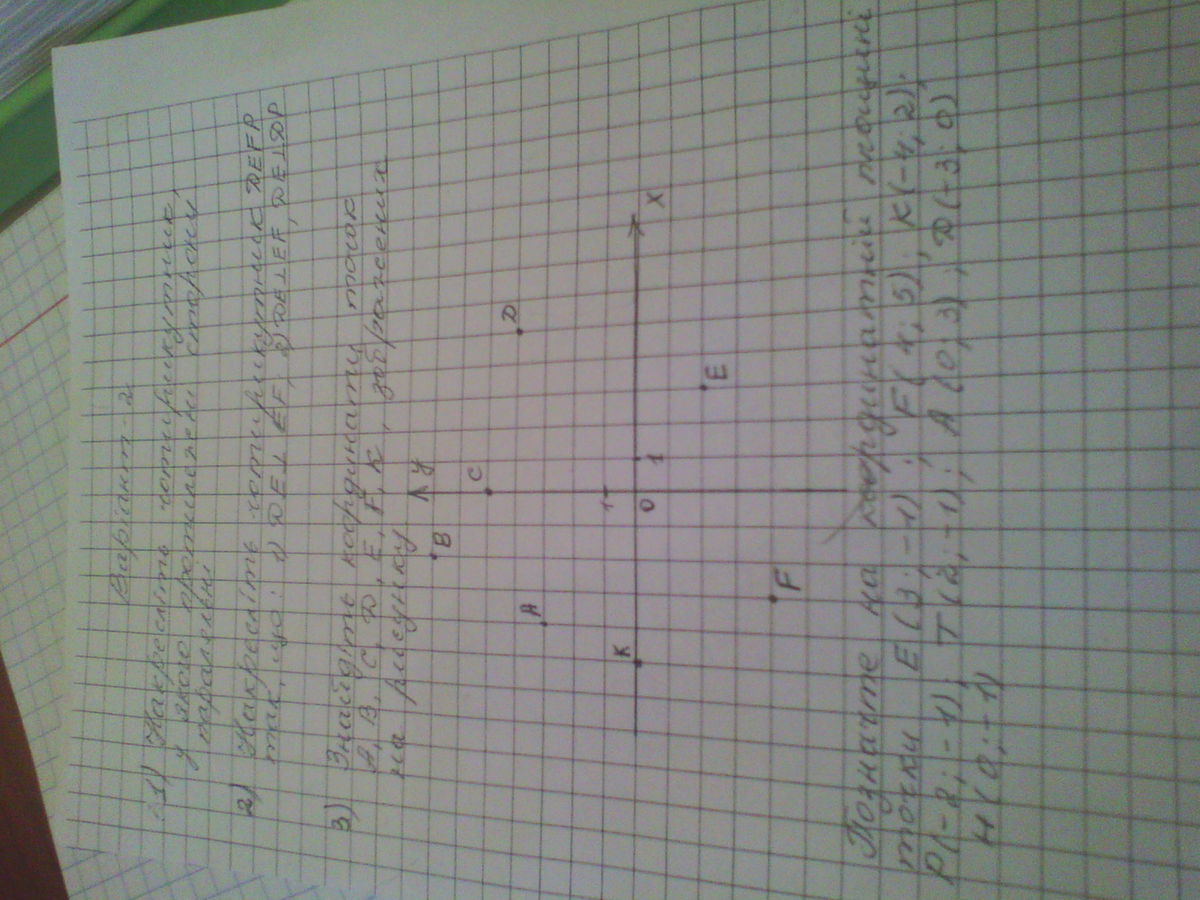 Варіант-2
1) Накресліть чотирикутник,
у якого протилежні сторони
паралельні
2) Накресліть чотирикутник DEFP
так, що: 1) DE⊥EF; 2) DE⊥EF, DE⊥DP
3) Знайдть координати точок
A, B, C, D, E, F, K, зображених
на рисунку
B
y
C
A
D
1
K
0
1
x
E
F
Позначте на координатній площині
точки E(3;-1); F(4;5); K(-4;2);
P(-2;-1); T(2;-1); A(0;3); D(-3;0)
H(0;-1)